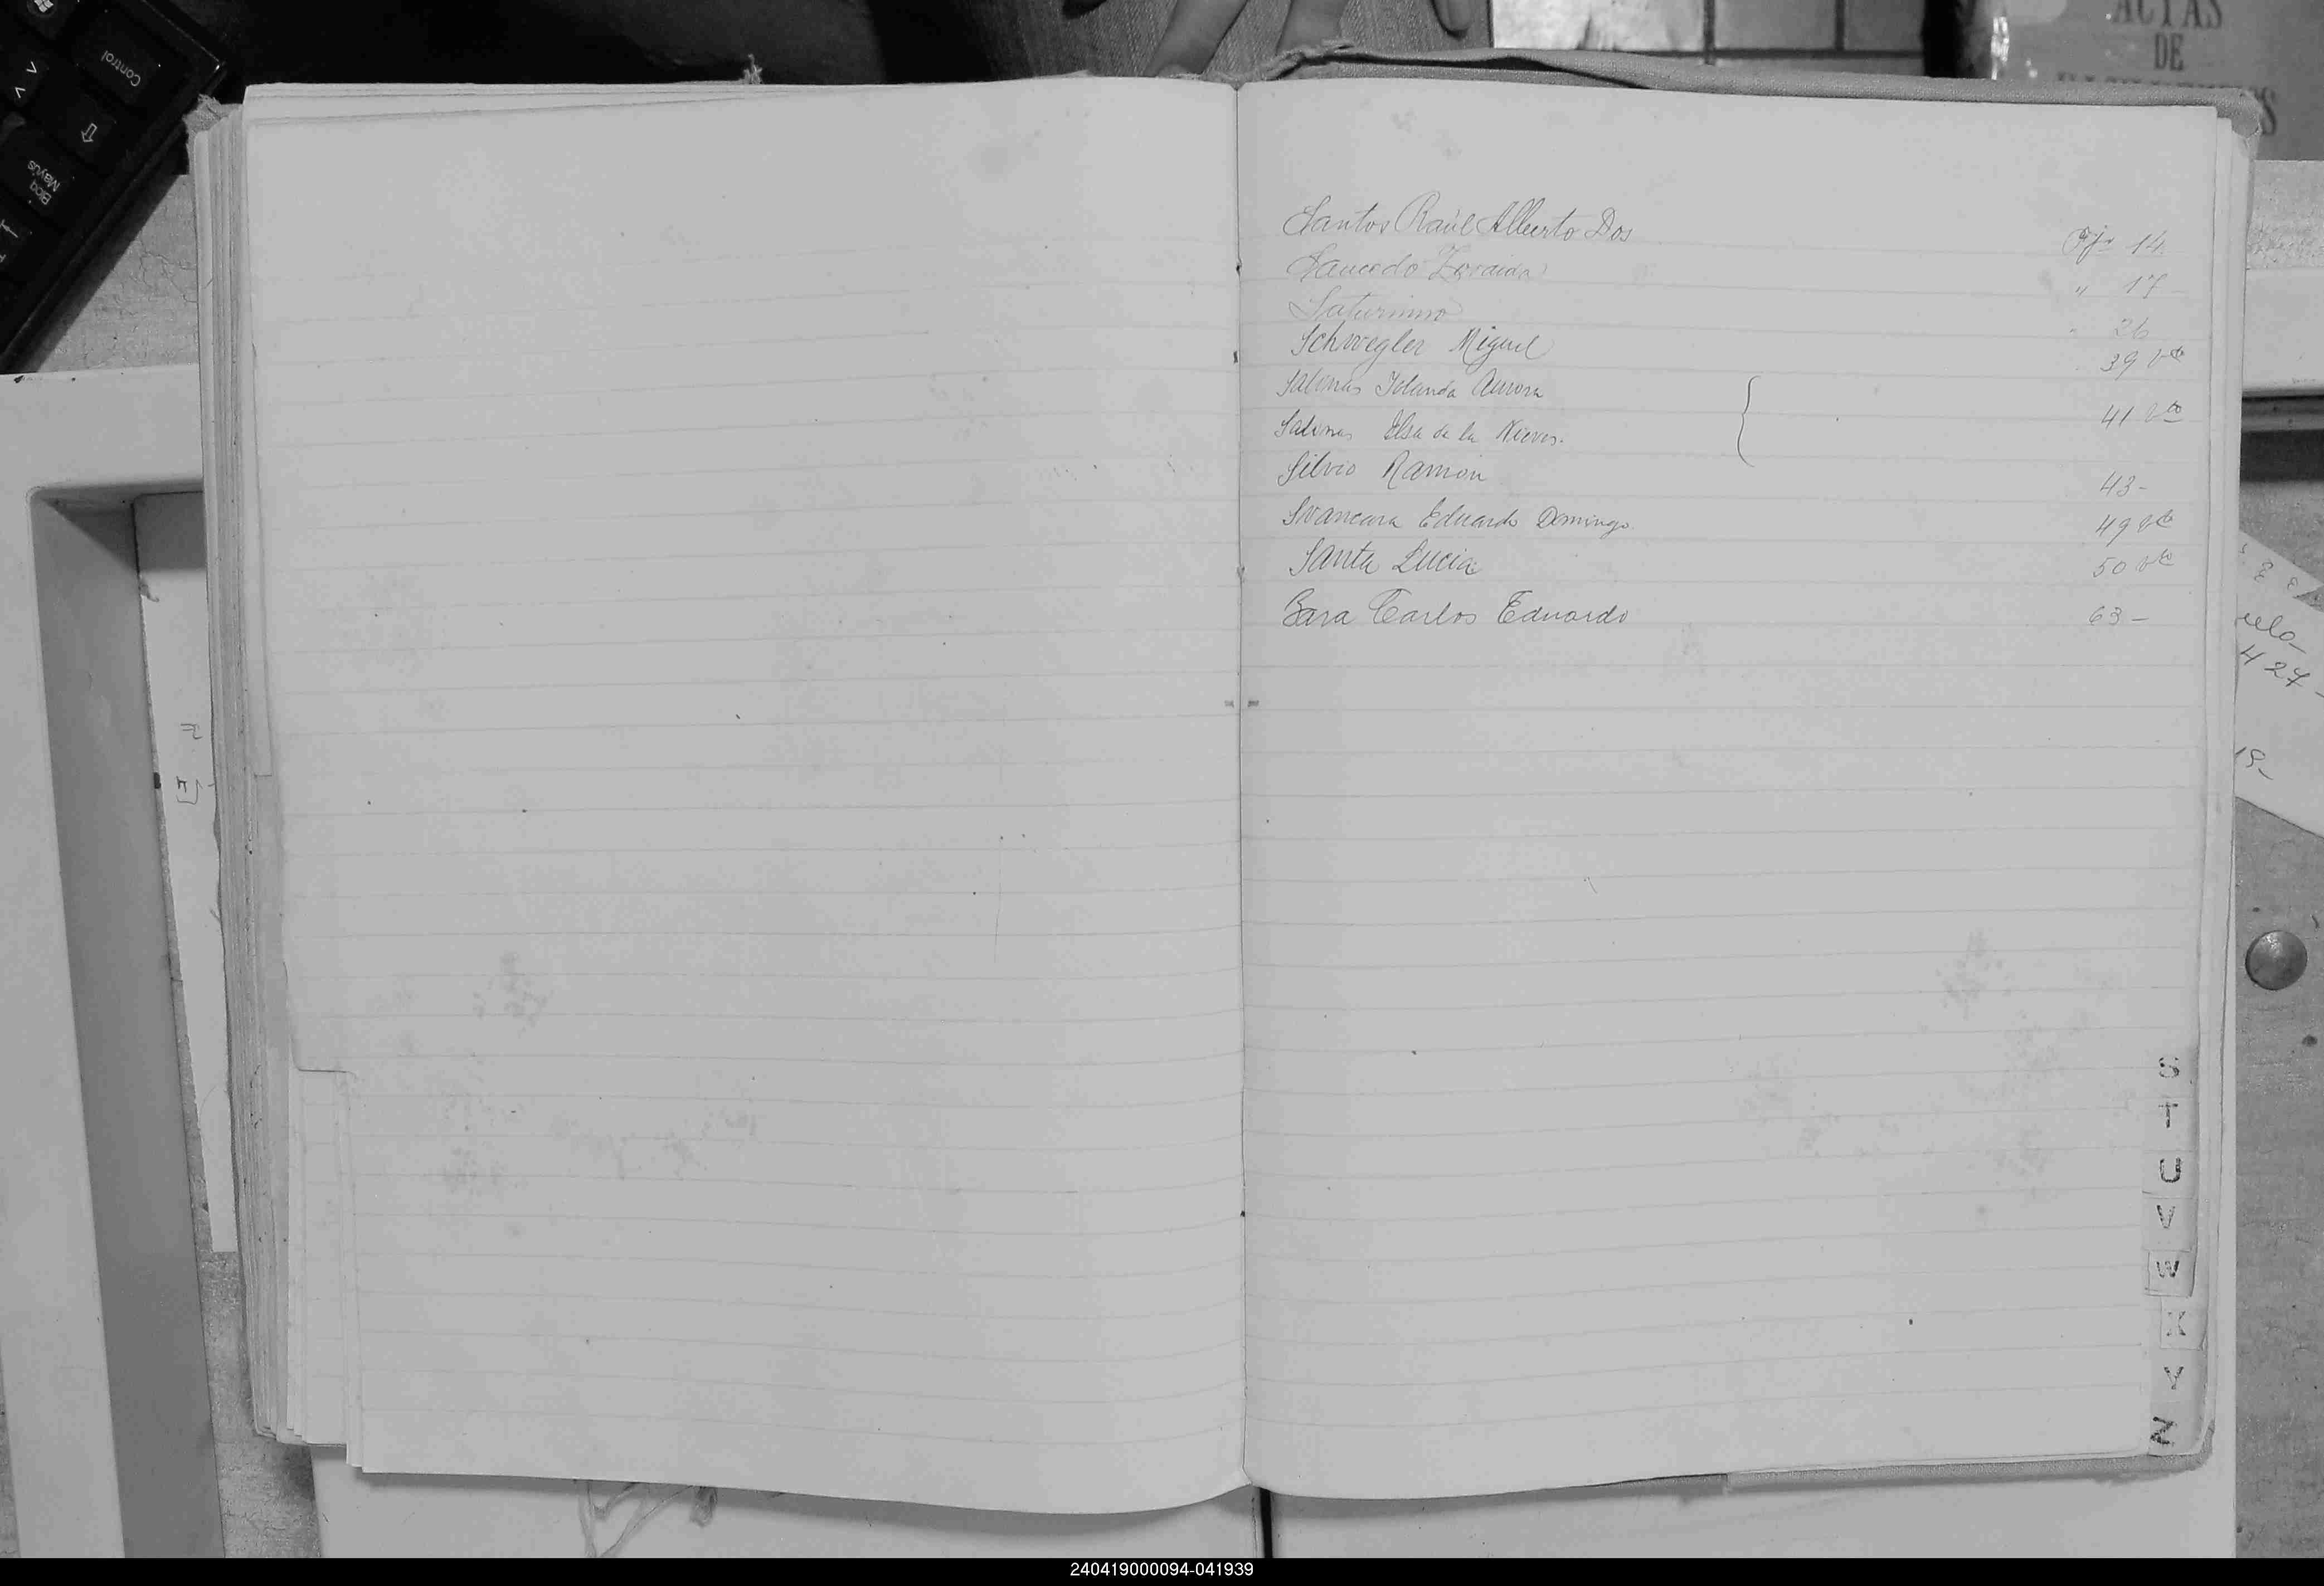 ACTAS
DE
Control
Bloq
Mayús
Santos Raúl Alberto Dos Fjs 14
Saucedo Zoraida " 17
Saturnino " 26
Schwegler Miguel 39 vto
Salinas Yolanda Aurora
41 vto
Salinas Elsa de la Nieves.
Silvio Ramón 43-
Svancara Eduardo Domingo 49 vto
Santa Lucia 50 vto
Sara Carlos Eduardo 63-
427-
19-
S
T
U
V
W
X
Y
Z
240419000094-041939